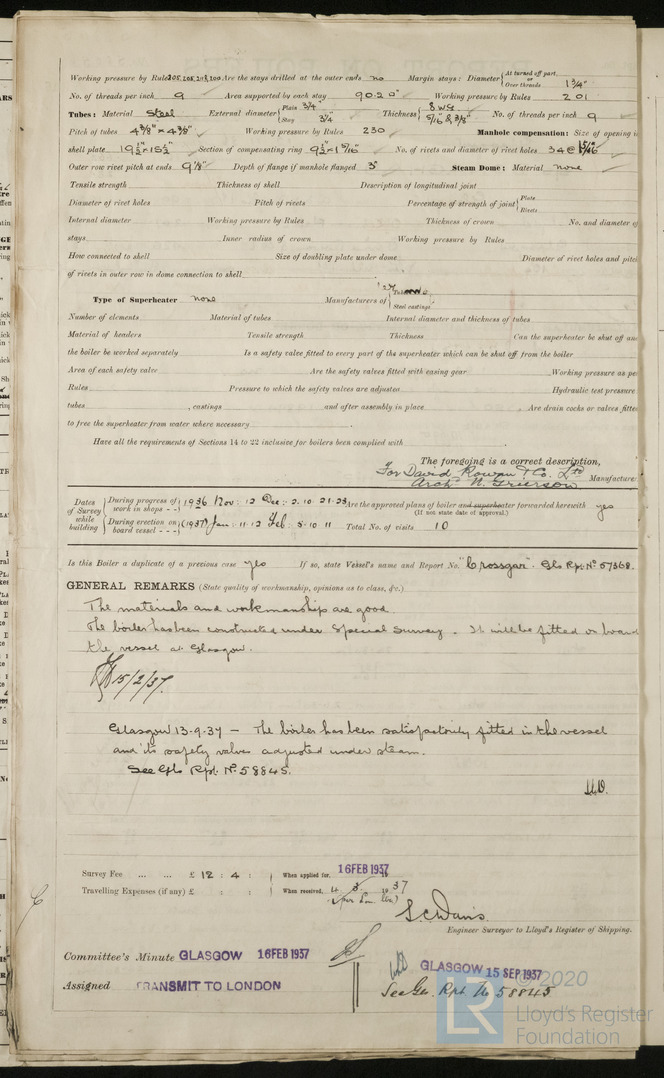 Working pressure by Rules 205, 208, 218, 200. Are the stays drilled at the outer ends no Margin stays: Diameter { At turned off part, or Over threads 1 3/4"
No. of threads per inch 9 Area supported by each stay 90.20" Working pressure by Rules 201
Tubes: Material Steel External diameter { Plain 3 1/4" Stay 3 1/4" Thickness { 8 WG 5/16" & 3/8" No. of threads per inch 9
Pitch of tubes 4 3/8" x 4 3/8" Working pressure by Rules 230 Manhole compensation: Size of opening in
shell plate 19 1/2" x 15 1/2" Section of compensating ring No. of rivets and diameter of rivet holes 34 @ 1 5/16"
Outer row rivet pitch at ends 9 1/8" Depth of flange if manhole flanged 3" Steam Dome: Material none
Tensile strength Thickness of shell Description of longitudinal joint
Diameter of rivet holes Pitch of rivets Percentage of strength of joint { Plate Rivets
Internal diameter Working pressure by Rules Thickness of crown No. and diameter of
stays Inner radius of crown Working pressure by Rules
How connected to shell Size of doubling plate under dome Diameter of rivet holes and pitch
of rivets in outer row in dome connection to shell
Type of Superheater none Manufacturers of { Steel castings
Number of elements Material of tubes Internal diameter and thickness of tubes
Material of headers Tensile strength Thickness Can the superheater be shut off and
the boiler be worked separately Is a safety valve fitted to every part of the superheater which can be shut off from the boiler
Area of each safety valve Are the safety valves fitted with easing gear Working pressure as per
Rules Pressure to which the safety valves are adjusted Hydraulic test pressure
tubes , castings and after assembly in place Are drain cocks or valves fitted
to free the superheater from water where necessary
Have all the requirements of Sections 14 to 22 inclusive for boilers been complied with
The foregoing is a correct description,
For David Rowan & Co. Ltd
Archd N. Grierson Manufacturer
Dates of Survey while building { During progress of work in shops - - } 1936 Nov: 12 Dec: 2. 10. 21. 23. Are the approved plans of boiler and superheater forwarded herewith yes
(If not state date of approval.)
{ During erection on board vessel - - - } (1937) Jan: 11. 12 Feb: 5. 10 11 Total No. of visits 10
Is this Boiler a duplicate of a previous case yes If so, state Vessel's name and Report No. "Crossgar". Gls Rpt. No 57368.
GENERAL REMARKS (State quality of workmanship, opinions as to class, &c.)
The materials and workmanship are good.
The boiler has been constructed under Special Survey. It will be fitted on board
the vessel at Glasgow.
15/2/37.
Glasgow 13-9-37 — The boiler has been satisfactorily fitted in the vessel
and its safety valves adjusted under steam.
See Gls Rpt. No. 58845.
Survey Fee ... ... £ 12 : 4 : When applied for, 16 FEB 1937
Travelling Expenses (if any) £ : : When received, 4 3 1937
S. C. Davis.
Engineer Surveyor to Lloyd's Register of Shipping.
Committee's Minute GLASGOW 16 FEB 1937
GLASGOW 15 SEP 1937
Assigned TRANSMIT TO LONDON
See Gls. Rpt No 58845
© 2020
LR Lloyd's Register
Foundation